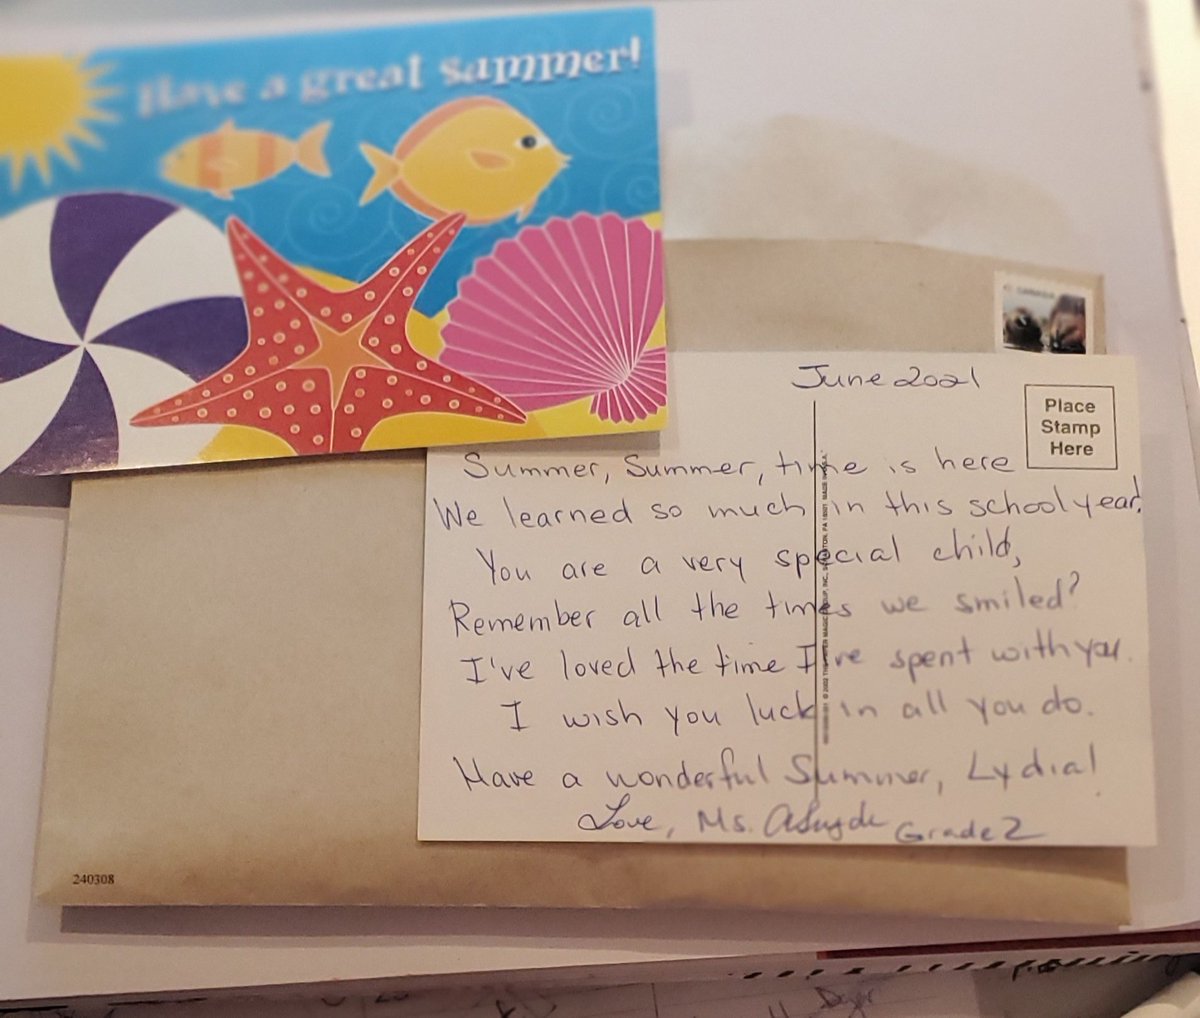 Have a great summer!
CANADA
June 2021
Place
Stamp
Here
Summer, Summer, time is here
We learned so much in this school year.
You are a very special child,
Remember all the times we smiled?
I've loved the time I've spent with you.
I wish you luck in all you do.
Have a wonderful Summer, Lydia!
Love, Ms. Grade 2
240308